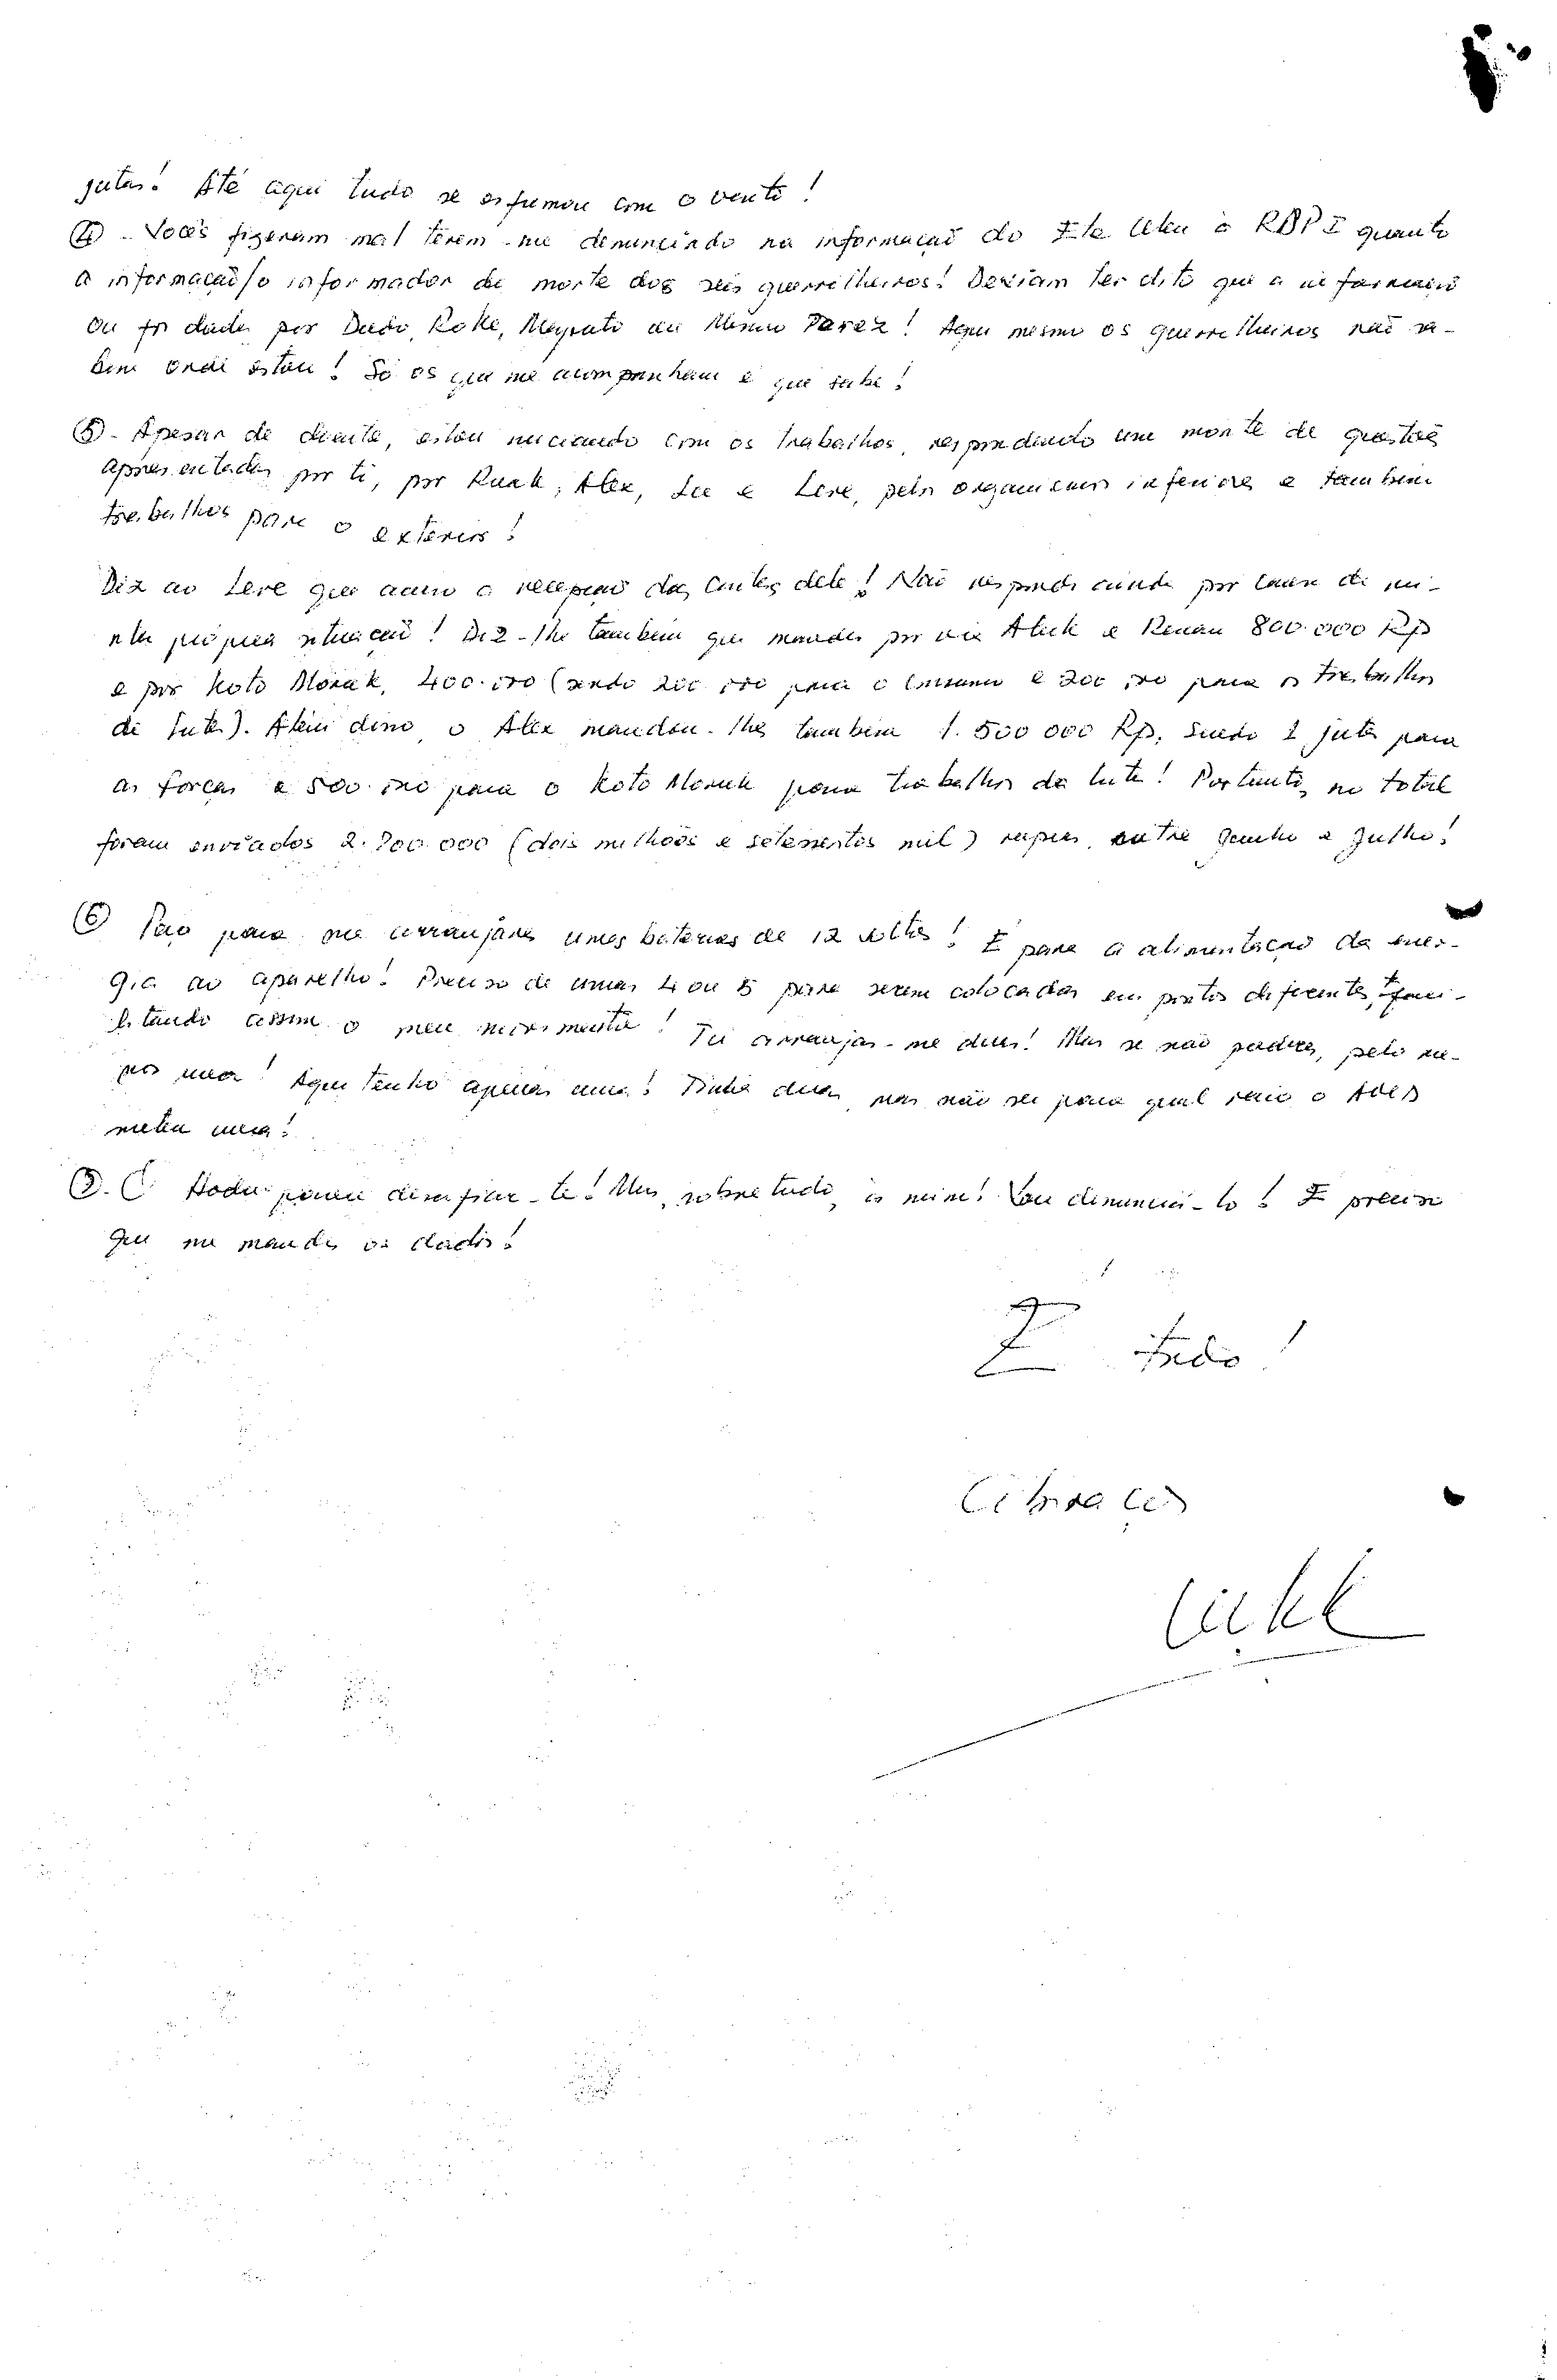 jutas! Até aqui tudo se esfumou com o vento!
④ - Vocês fizeram mal terem-me denunciado na informação do à RDP I quanto
à informação/o informador da morte dos seis guerrilheiros! Deviam ter dito que a informação
ou foi dada por Dudo, Koke, ou ! Aqui mesmo os guerrilheiros não sa-
bem onde estou! Só os que me acompanham é que sabe!
⑤ - Apesar de doente, estou iniciando com os trabalhos, respondendo um monte de questões
apresentadas por ti, por Ruak, Alex, e Lere, pelos organismos inferiores e também
trabalhos para o exterior!
Diz ao Lere que acuso a recepção das cartas dele! Não respondi ainda por causa da mi-
nha própria situação! Diz-lhe também que mandei por via e Renan 800.000 Rp
e por Koto Morak, 400.000 (sendo 200.000 para o e 200.000 para os trabalhos
de luta). Além disso, o Alex mandou-lhes também 1.500 000 Rp, sendo 1 juta para
as forças e 500.000 para o Koto Morak para trabalhos da luta! Portanto, no total
foram enviados 2.700.000 (dois milhões e setessentos mil) rupias, entre Junho e Julho!
⑥ Peço para me arranjares umas baterias de 12 voltes! É para a alimentação da ener-
gia ao aparelho! Preciso de umas 4 ou 5 para serem colocadas em pontos diferentes, faci-
litando assim o meu movimento! Tu arranjas-me duas! Mas se não puderes, pelo me-
nos uma! Aqui tenho apenas uma! Tinha duas, mas não sei para qual raio o Ales
uma!
⑦. O para desafiar-te! Mas, sobretudo, a mim! Vou denunciá-lo! É preciso
que me mandes os dados!
É tudo!
Abraços